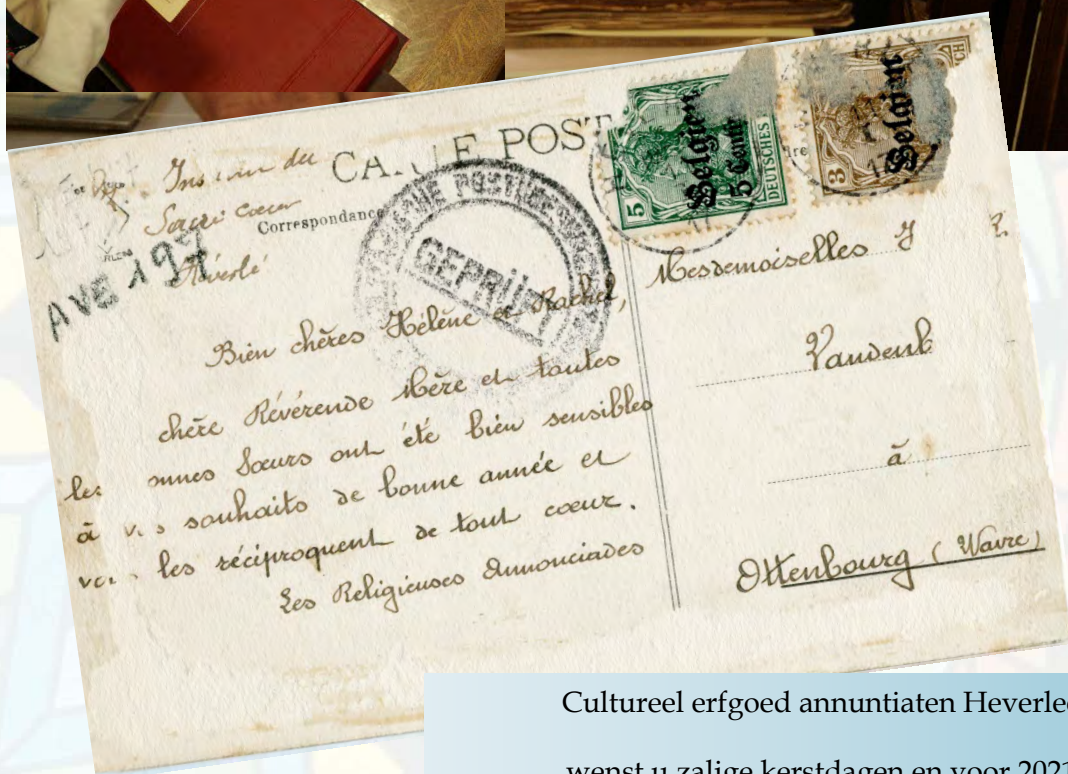 CARTE POST
Correspondance
Sacré coeur
Héverlé
GEPRÜFT
5
Belgien
5 Cent.
DEUTSCHES
3
Belgien
CH
Bien chères Hélène et Rachel,
chère Révérende Mère et toutes
les onnes Soeurs ont été bien sensibles
à v s souhaits de bonne année et
vo les réciproquent de tout coeur.
Les Religieuses Annonciades
Mesdemoiselles
Vandenb
à
Ottenbourg (Wavre)
Cultureel erfgoed annuntiaten Heverlee
wenst u zalige kerstdagen en voor 2021